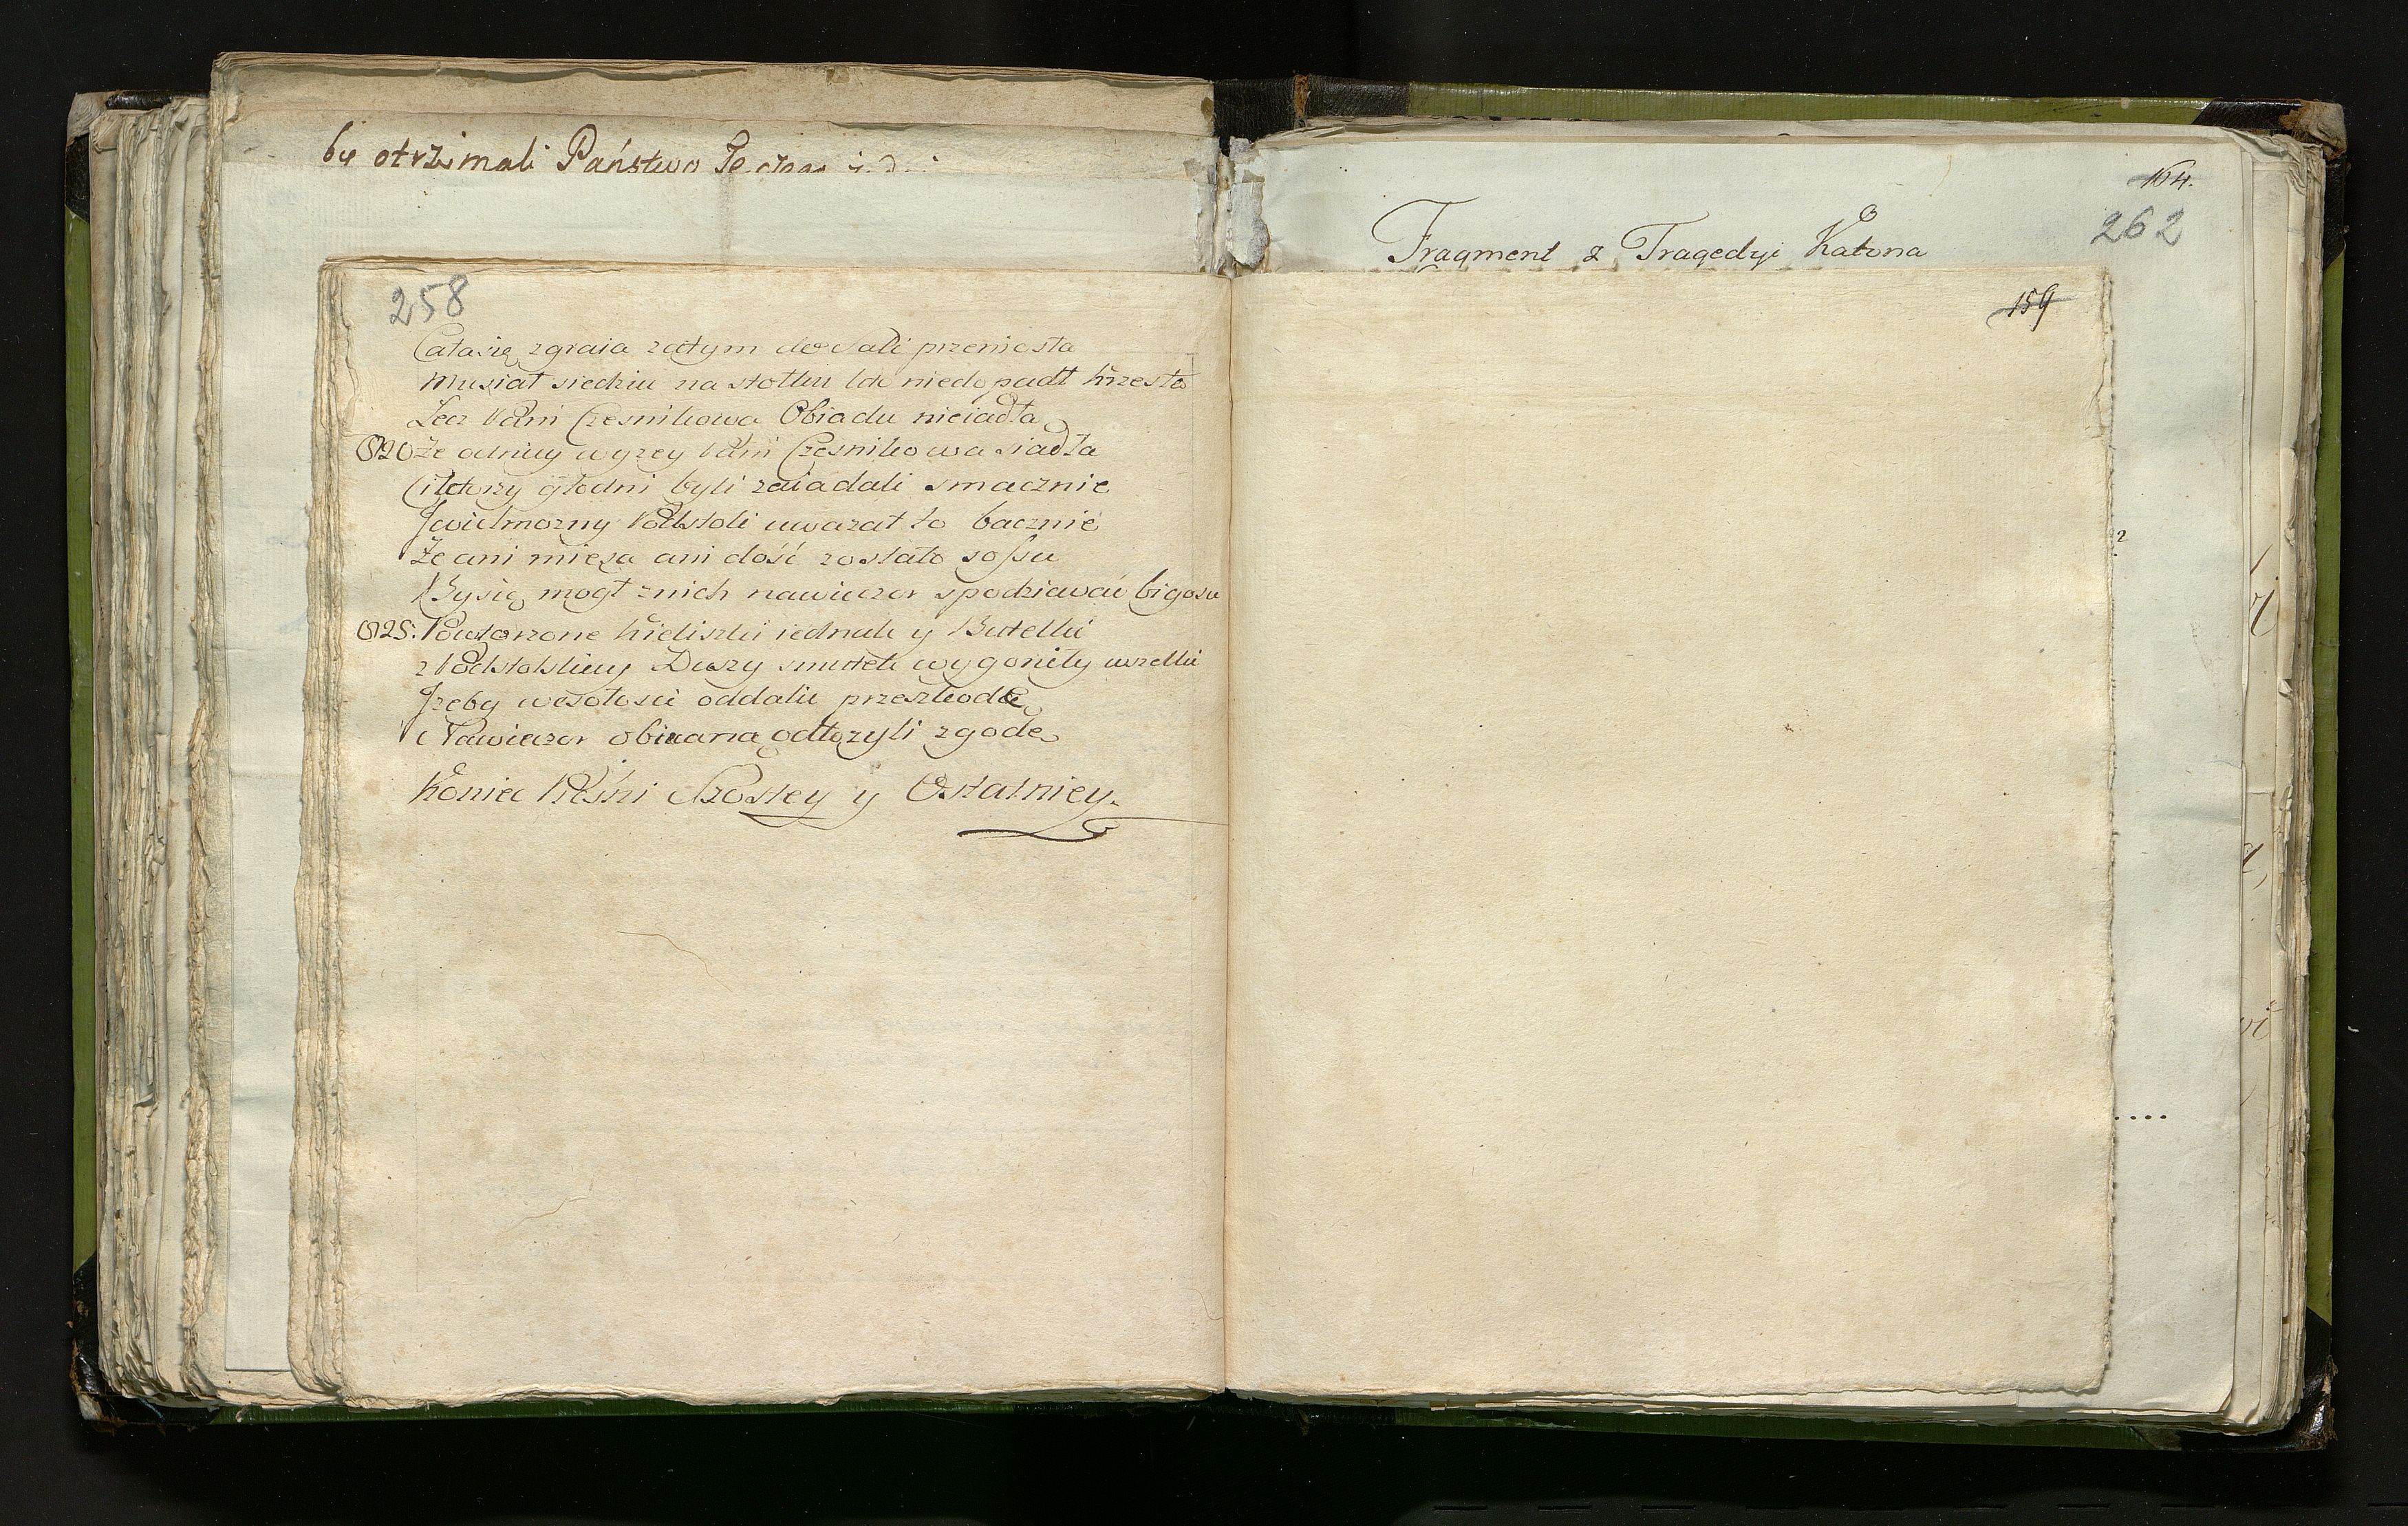 by otrzimali Państwo
258
Cała się zgraia zatym do sali przeniosła
Musiał siedziec na stołku kto niedopadł krzesła
Lecz Pani Czesnikowa Obiadu nieiadła
820 Że od niey wyzey Pani Czesnikowa siadła
Ci ktorzy głodni byli zaiadali smacznie
Jwielmozny Podstoli uwazał to bacznie
Że ani mięsa ani dość zostało sossu
By się mogł z nich nawieczor spodziewać bigosu
825. Powtorzone kieliszki iednak y Butelki
z Podstolskiey Duszy smutek wygoniły wszelki
Jzeby wesołosci oddalic przeszkodę
Nawieczor obiecaną odłozyli zgodę
Koniec Pieśni Szostey y Ostatniey.
104.
262
Fragment z Tragedyi Katona
159